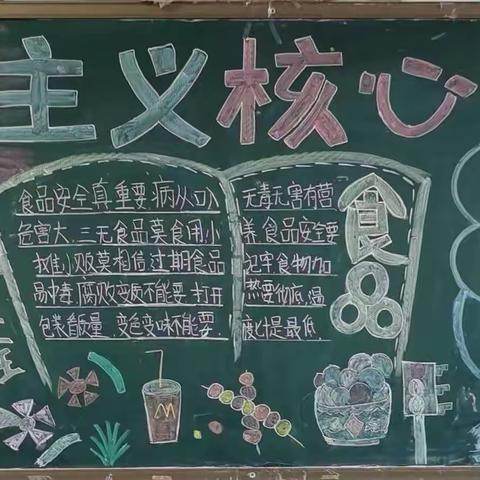 主义核心
食品安全真重要病从口入
危害大.三无食品莫食用小
摊小贩莫相信过期食品
易中毒.腐败变质不能要.打开
包装看质量.变色变味不能要.
无毒无害有营
养.食品安全要
记牢食物加
热要彻底.温
度计是最低.
食品